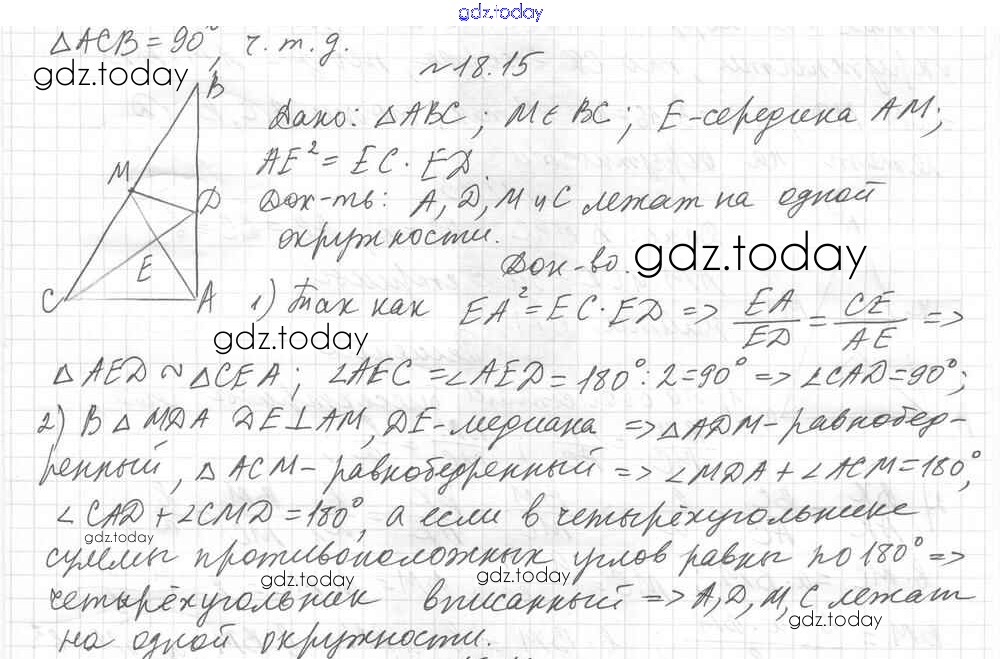 gdz.today
∆ACB = 90°, ч.т.д.
gdz.today
№18.15
B
Дано: ∆ABC; M∈BC; E-середина AM;
AE² = EC · ED.
M
D
Док-ть: A, D, M и C лежат на одной
окружности.
E
Док-во.
gdz.today
C
A
1) Так как EA² = EC · ED => EA/ED = CE/AE =>
gdz.today
∆AED ~ ∆CEA; ∠AEC = ∠AED = 180° : 2 = 90° => ∠CAD = 90°;
2) В ∆MDA DE⊥AM, DE-медиана => ∆ADM-равнобед-
ренный, ∆ACM-равнобедренный => ∠MDA + ∠ACM = 180°,
∠CAD + ∠CMD = 180°, а если в четырёхугольнике
gdz.today
суммы противоположных углов равны по 180° =>
gdz.today
gdz.today
четырёхугольник вписанный => A, D, M, C лежат
gdz.today
на одной окружности.